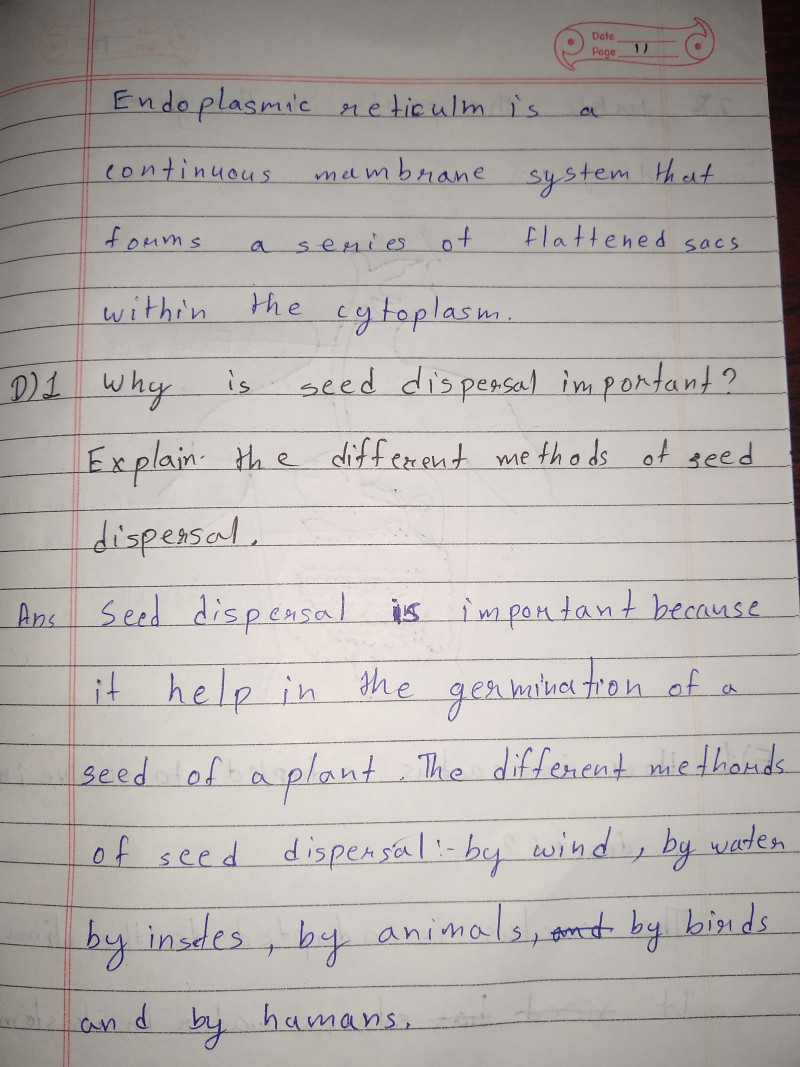 Date
Page 11
Endoplasmic reticulm is a
continuous mambrane system that
forms a series of flattened sacs
within the cytoplasm.
D)1 Why is seed dispersal important?
Explain. the different methods of seed
dispersal.
Ans Seed dispersal is important because
it help in the germination of a
seed of a plant. The different methords
of seed dispersal:- by wind, by water
by insdes, by animals, and by birds
and by humans.